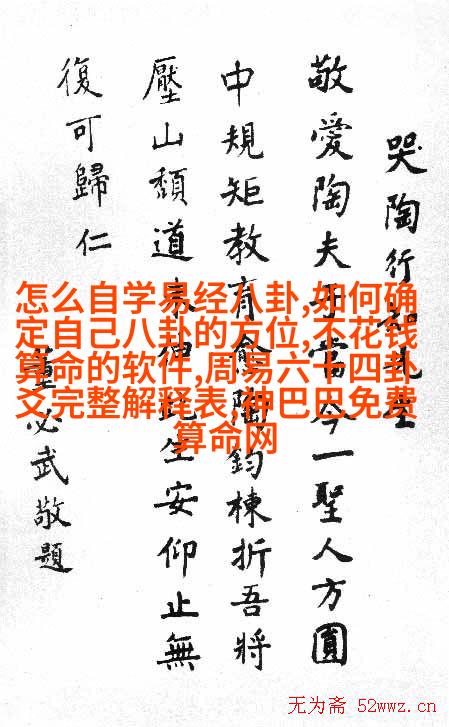 哭陶行知先生
敬愛陶夫子當今一聖人方圓
中規矩教育愈陶鈞棟折吾將
壓山頹道未伸此生安仰止無
復可歸仁
董必武敬題
怎么自学易经八卦,如何确
定自己八卦的方位,不花钱
算命的软件,周易六十四卦
爻完整解释表,神巴巴免费
算命网
无为斋 52wwz.cn